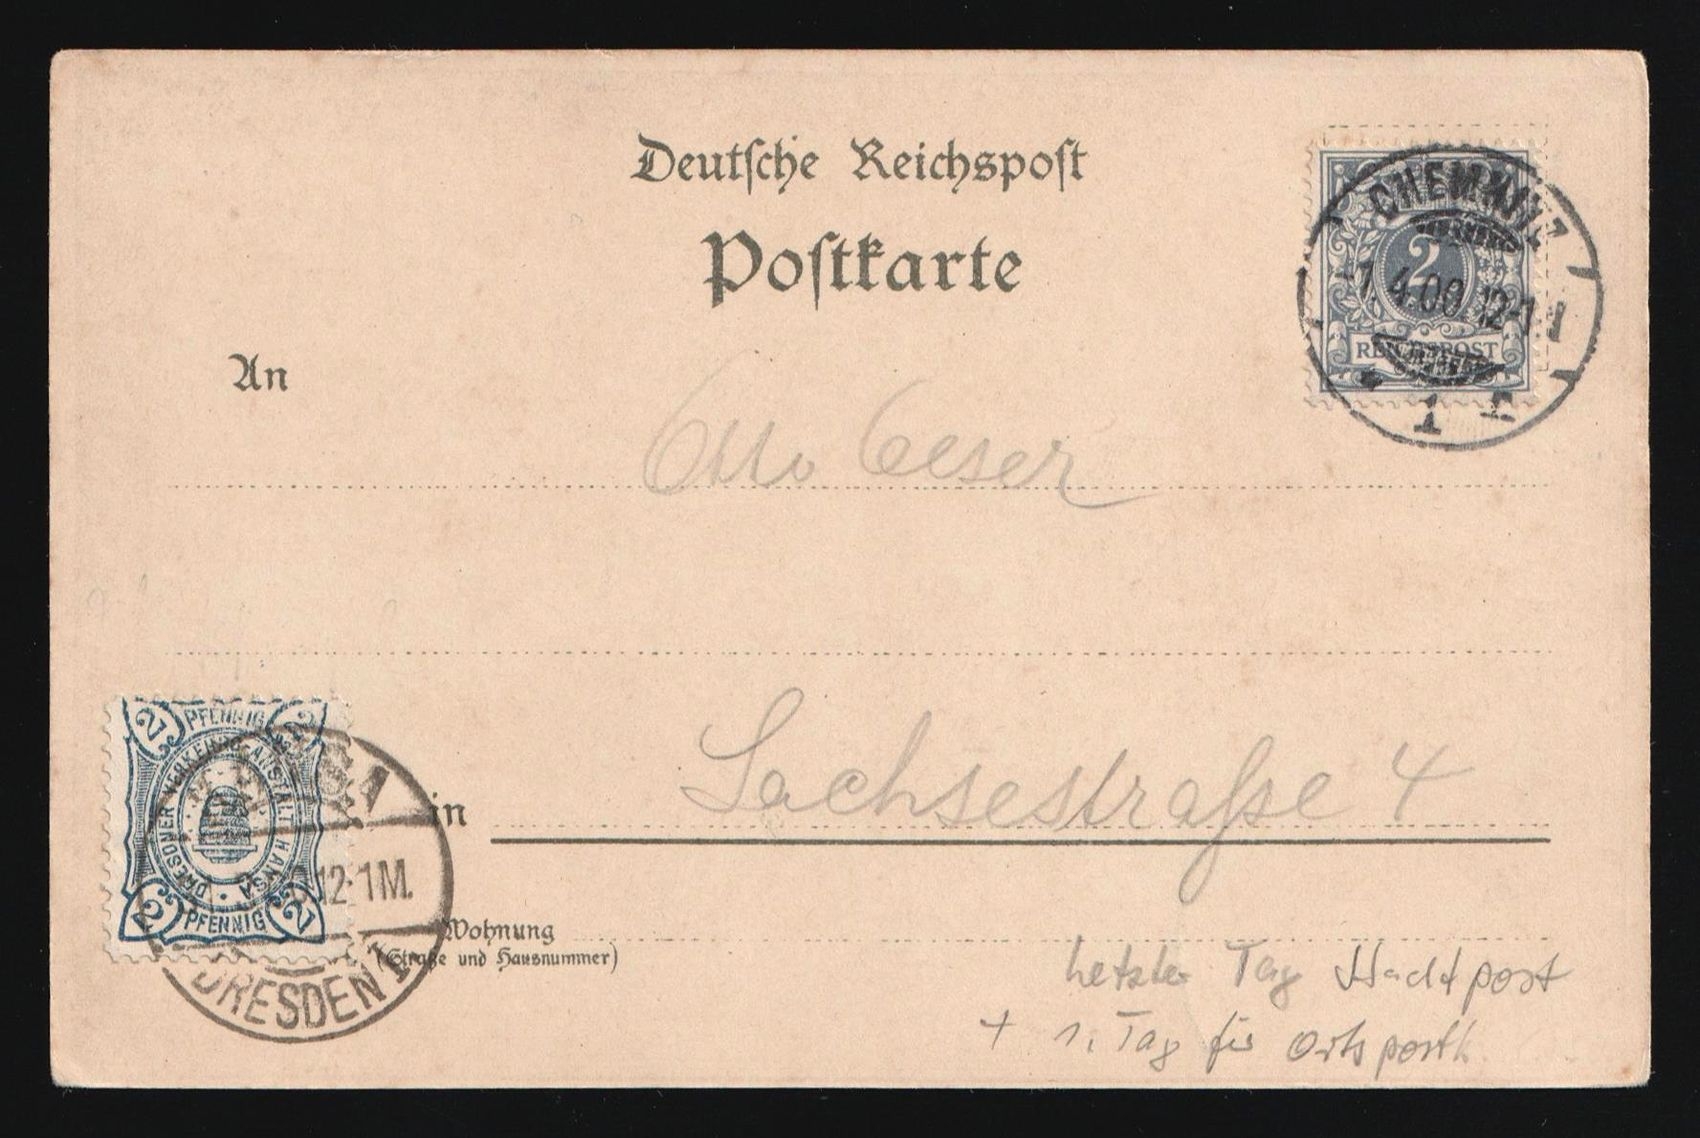 Deutsche Reichspost
Postkarte
CHEMNITZ
2
-1.4.00.12-1
REICHSPOST
1
An
Otto
Sachsestraße 4
in
2 PFENNIG 2
DRESDNER VERKEHRS-ANSTALT HANSA
2 PFENNIG 2
HANSA
12-1M.
DRESDEN
Wohnung
(Straße und Hausnummer)
Letzter Tag Stadtpost
+ 1. Tag für Ortsposth